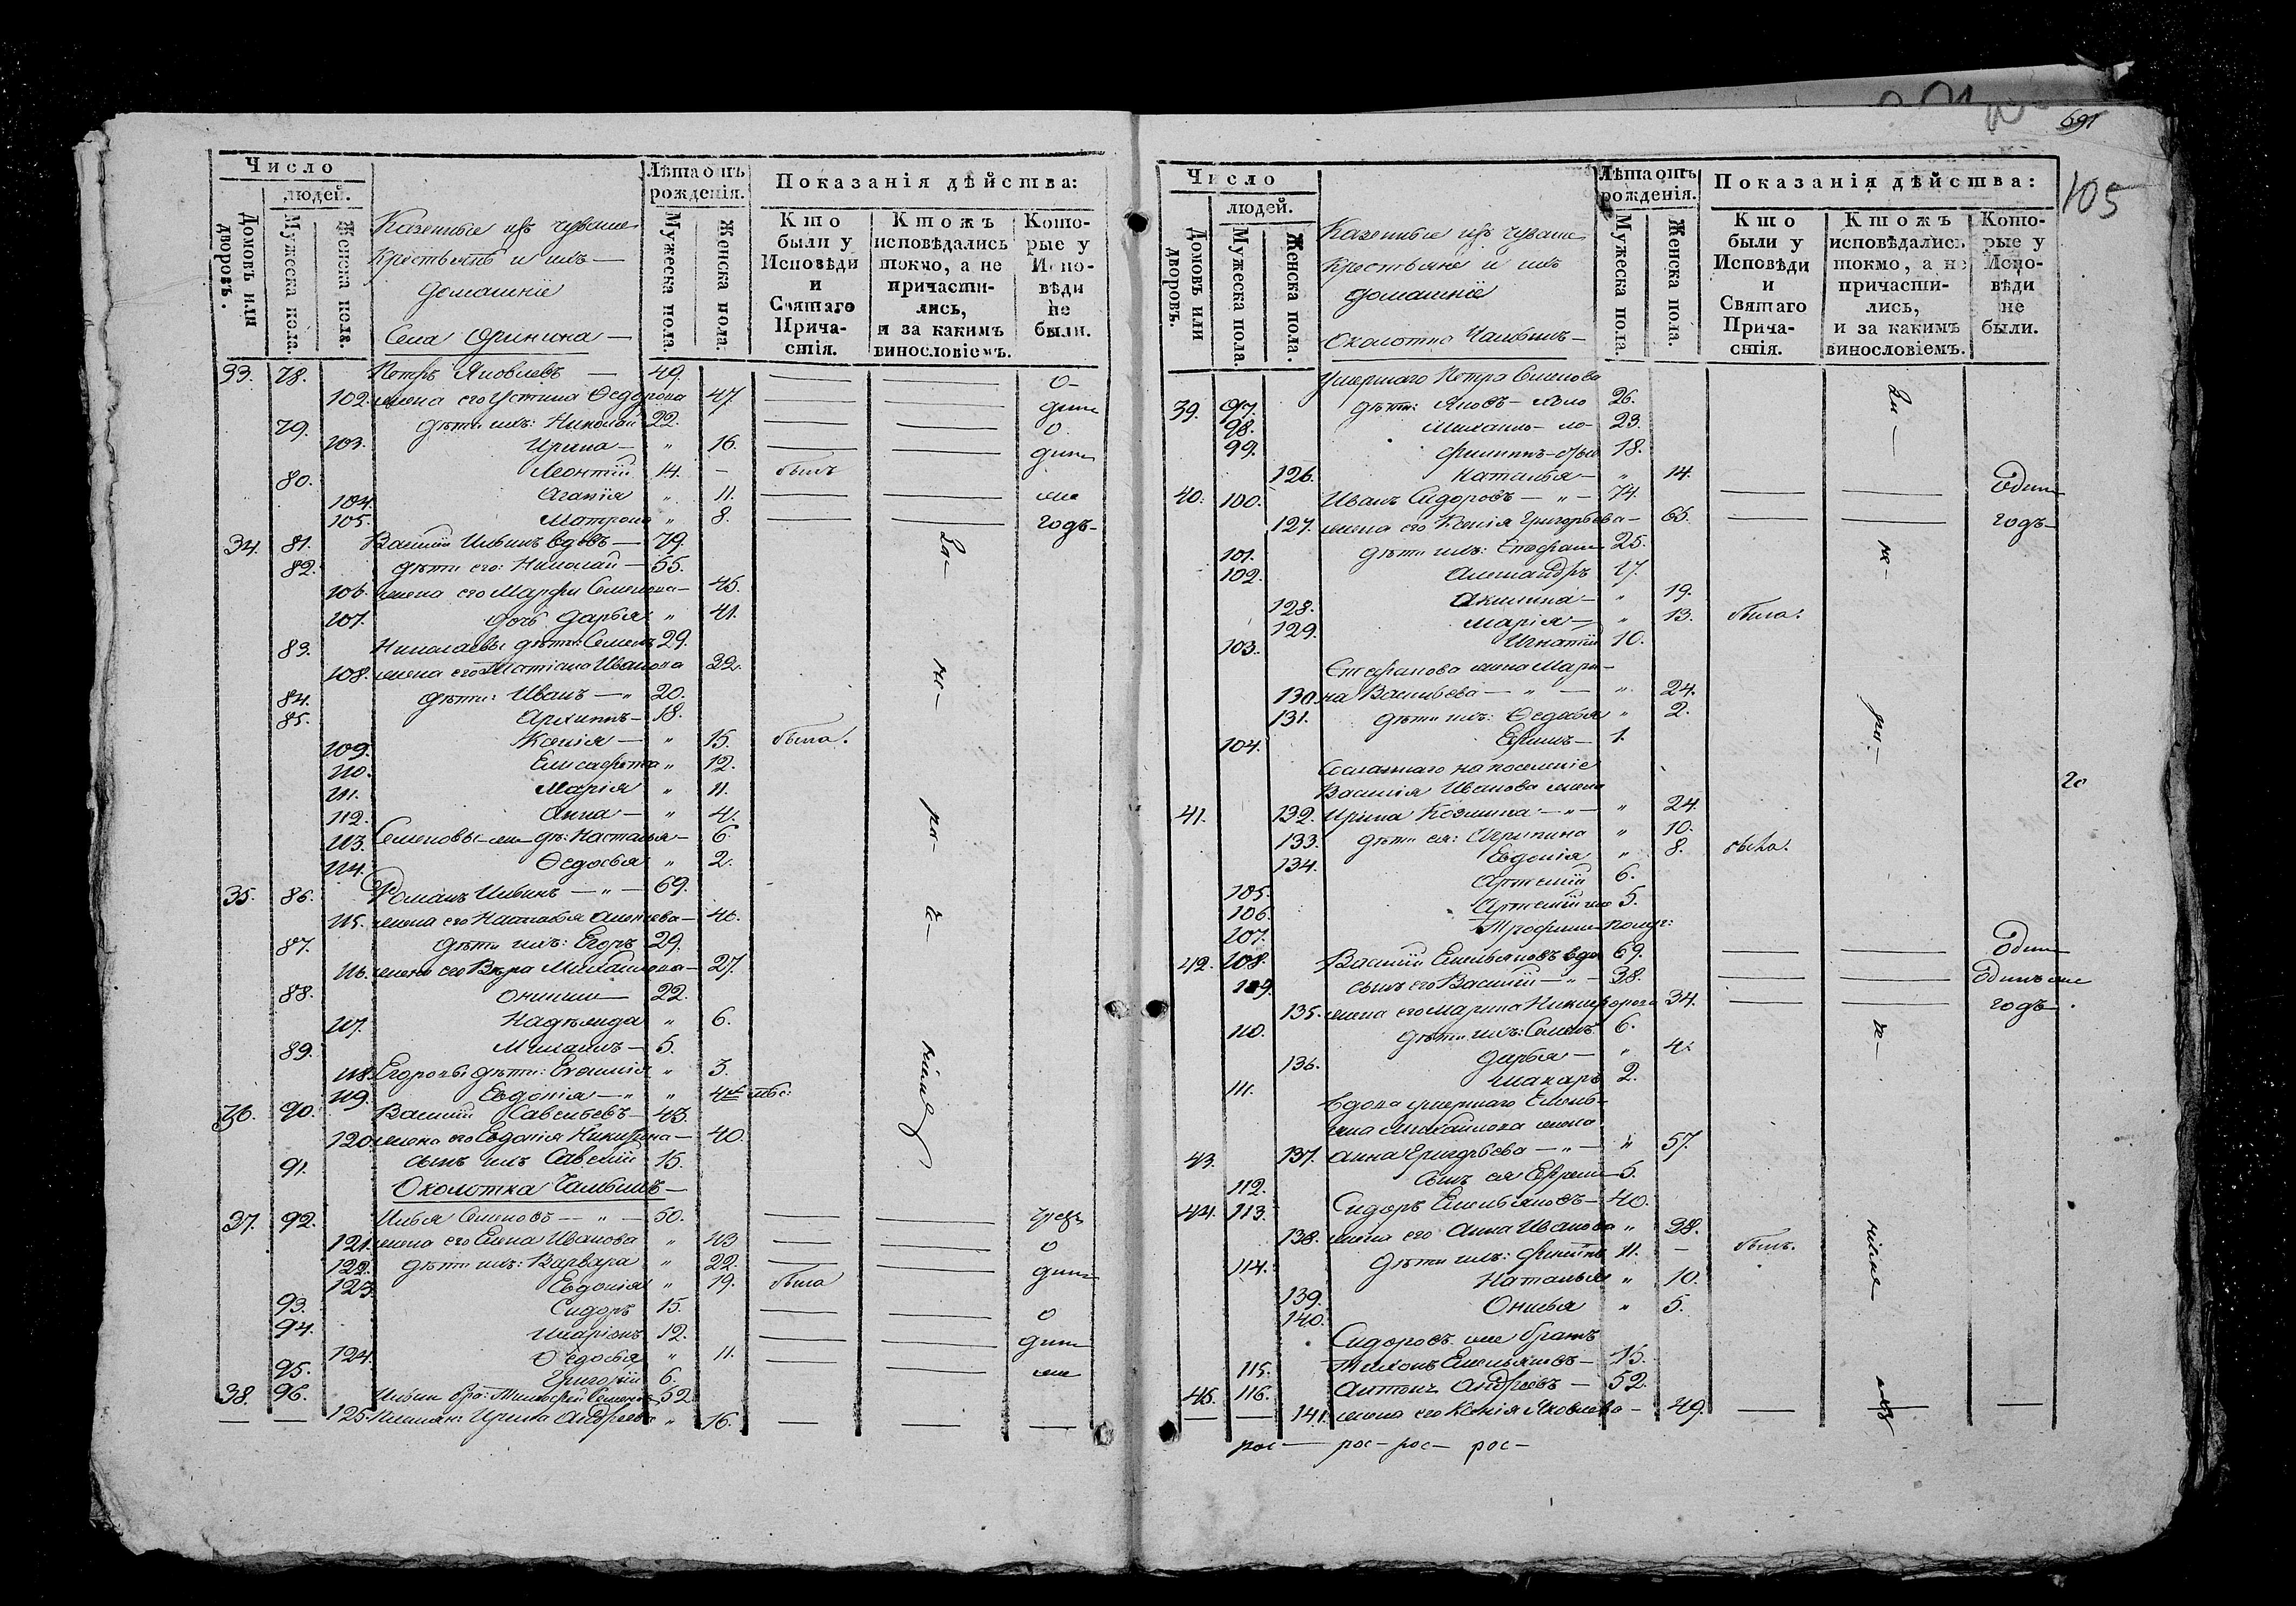 Число
людей.
Домовъ или дворовъ.
Мужеска пола.
Женска пола.
Казенные изъ чуваше
Крестьянъ и ихъ —
домашніе
Села Оринина —
Лѣта отъ рожденія.
Мужеска пола.
Женска пола.
Показанія дѣйства:
Кто были у Исповѣди и Святаго Прича-стія.
Ктожъ исповѣдались токмо, а не причасти-лись, и за какимъ винословіемъ.
Кото-рые у Испо-вѣди не были.
33. 78. Петръ Яковлевъ — 49. о-
102. жена его Устина Ѳедорова 47. дин
79. дѣти ихъ: Николай 22. о
103. Ирина — " 16. дин
80. Леонтій 14. — былъ
104. Агапія " 11. же
105. Матрона " 8. годъ
34. 81. Василій Ильинъ вдовъ — 79.
82. дѣти его: Николай — 55.
106. жена его Марфа Семенова — 45.
107. дочь Дарья " 41.
83. Николаевы дѣти: Семенъ 29.
108. жена его Татіана Иванова 32.
84. дѣти: Иванъ — " 20.
85. Архипъ — 18.
109. Ксенія — " 15. была.
110. Елисавета " 12.
111. Марія " 11.
112. Анна — " 4.
113. Семеновы дѣ: Насталья — 6.
114. Ѳедосья " 2.
35. 86. Романъ Ильинъ — " — 69.
115. жена его Наталья Алексева — 40.
87. дѣти ихъ: Егоръ 29.
116. жена его Вѣра Михайлова — 27.
88. 22.
117. Надѣжда " 6.
89. Михаилъ — 5.
118. Егоровы дѣти: " 3.
119. Евдокія — " " 4
36. 90. Василій Савельевъ — 43.
120. жена его Евдокія Никитина — 40.
91. сынъ ихъ Савелій 15.
Околотка —
37. 92. Илья Семеновъ — " — 50.
121. жена его Елена Иванова " 43
122. дѣти ихъ: Варвара " 22. дин
123. Евдокія " 19. была
93. Сидоръ 15. о
94. Иларіонъ 12. дин
124. Ѳедосья " 11. же
95. Григорій 6.
38. 96. Ильинъ бра: Тимофей Семеновъ 52
125. Ирина Андреева " 16.
691
105
Число
людей.
Домовъ или дворовъ.
Мужеска пола.
Женска пола.
Казенные изъ чуваше
Крестьяне и ихъ
домашніе
Околотка
Лѣта отъ рожденія.
Мужеска пола.
Женска пола.
Показанія дѣйства:
Кто были у Исповѣди и Святаго Прича-стія.
Ктожъ исповѣдались токмо, а не причасти-лись, и за какимъ винословіемъ.
Кото-рые у Испо-вѣди не были.
Умершаго Петра Семенова
39. 97. дѣти: Яковъ — 26.
98. Михаилъ — 23.
99. Филиппъ — 18.
126. Наталья — " 14.
40. 100. Иванъ Сидоровъ — " — 74. Один
127. жена его Ксенія Григорьева — 65. годъ
101. дѣти ихъ: Стефанъ 25.
102. Александръ 17.
128. Акилина — " 19.
129. Марія — " 13. была.
103. Игнатій 10.
Стефанова жена Мари-
130. на Васильева — " — " 24.
131. дѣти ихъ: Ѳедосья " 2.
104. Ефимъ — 1.
Сосланнаго на поселеніе
Василія Иванова жена
41. 132. Ирина Козмина — " — " 24.
133. дѣти ея: Агрипина " 10.
134. Евдокія " 8. была.
105. Артемій 6.
106. Артемій же 5.
107. Трофимъ полуг:
42. 108. Василій Емельяновъ вдо 69. Один
109. сынъ его Василій — " — 38. Одинъ же
135. жена его Марина Никифорова 34. годъ
110. дѣти ихъ: Семенъ 6.
136. Дарья — " 4.
111. Макаръ 2.
Вдова умершаго Емель-
яна Михайлова жена
43. 137. Анна Григорьева — " — " 57.
112. Сынъ ея Ефремъ 5.
44. 113. Сидоръ Емельяновъ — 40.
138. жена его Анна Иванова " 28.
114. дѣти ихъ: 11. — былъ.
139. Наталья " 10.
140. " 5.
Сидоровъ же братъ
115. Тихонъ Емельяновъ — 15.
45. 116. Антонъ Андреевъ — 52.
141. жена его Ксенія Яковлева — 49.
рос — рос — рос — рос —